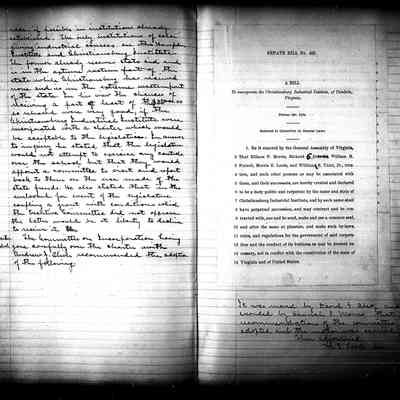 state if possible in institutions already
established. The only institutions of color
giving industrial courses are the Hampton
Institute and Christiansburg Institute.
The former already receives state aid and
is in the extreme eastern part of the
state while Christiansburg has received
none and is in the extreme western part
of the state. In his view the chances of
securing a part at least of the
so released were very good if the
Christiansburg Industrial Institute were
incorporated with a charter which would
be acceptable to the legislature. In answer
to inquiry he stated that the legislature
would not attempt to exercise any control
over the school but that they would
appoint a committee to visit and report
back to them the use made of the
state funds. He also stated that in the
event of the legislature
coupling a grant with conditions which
the Executive Committee did not approve
the latter would be at liberty to decline
to receive it.
The Committee on Incorporation having
gone carefully over the charter with
recommended the adoption
of the following:
SENATE BILL No. 401.
A BILL
To incorporate the Christiansburg Industrial Institute, of Cambria,
Virginia.
Referred to Committee on General Laws.
1. Be it enacted by the General Assembly of Virginia,
2 That Elliston P. Morris, Richard William H.
3 Haines, Morris E. Leeds, and William Tatum, Jr.,
4 and such other persons as may be associated with
5 them, and their successors, are hereby created and declared
6 to be a body politic and corporate by the name and style of
7 Christiansburg Industrial Institute, and by such name shall
8 have perpetual succession, and may contract and be con-
9 tracted with, sue and be sued, make and use a common seal,
10 and alter the same at pleasure, and make such by-laws,
11 rules, and regulations for the government of said corpora-
12 tion and the conduct of its business as may be deemed ne-
13 cessary, not in conflict with the constitution of the state of
14 Virginia and of United States.
It was moved by David
seconded by Samuel that
recommendation of the committee
adopted and the motion was carried
Then adjourned